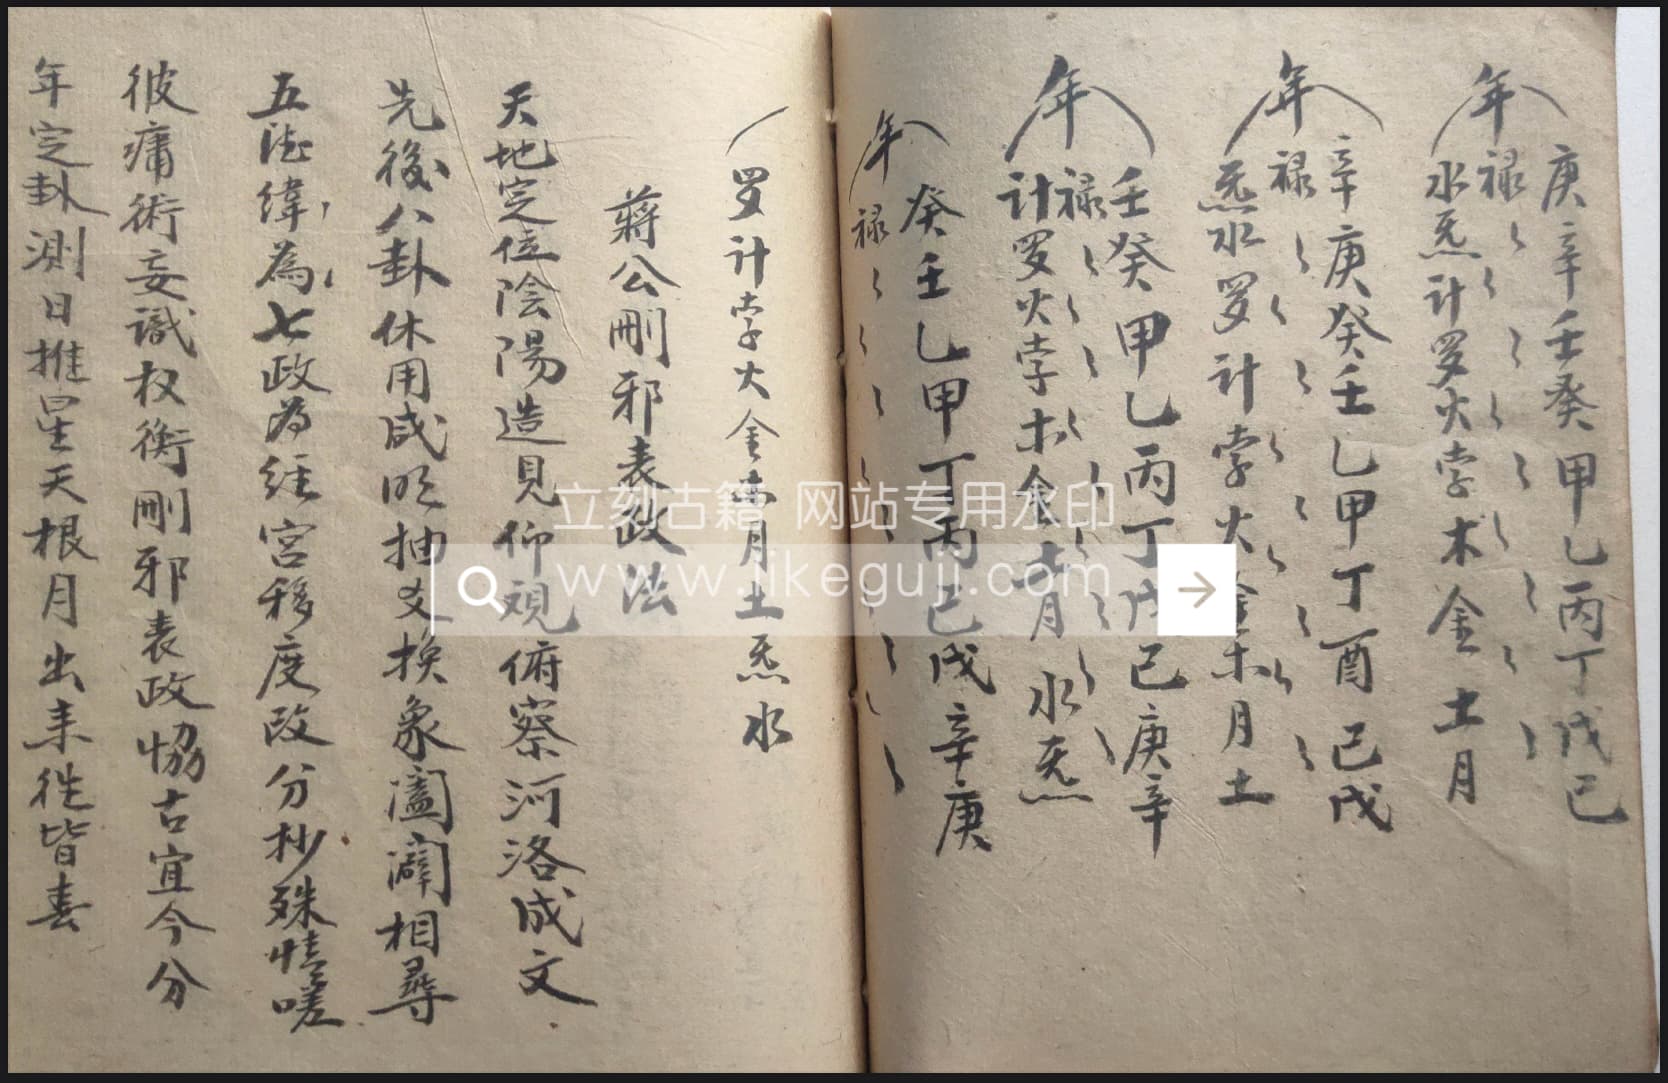 庚辛壬癸甲乙丙丁戊己
年禄
水炁计罗火孛木金土月
辛庚癸壬乙甲丁酉己戊
年禄
炁水罗计孛火金木月土
壬癸甲乙丙丁戊己庚辛
年禄
计罗火孛木金土月水炁
癸壬乙甲丁丙己戊辛庚
年禄
罗计孛火金木月土炁水
蔣公刪邪表政法
天地定位陰陽造見仰观俯察河洛成文
先後八卦休用咸明抽爻换象阖闢相尋
五德緯為七政为经宮移度改分杪殊情嗟
彼庸術妄識权衡刪邪表政恊古宜今分
年定卦測日推星天根月出耒徃皆春
立刻古籍 网站专用水印
www.likeguji.com